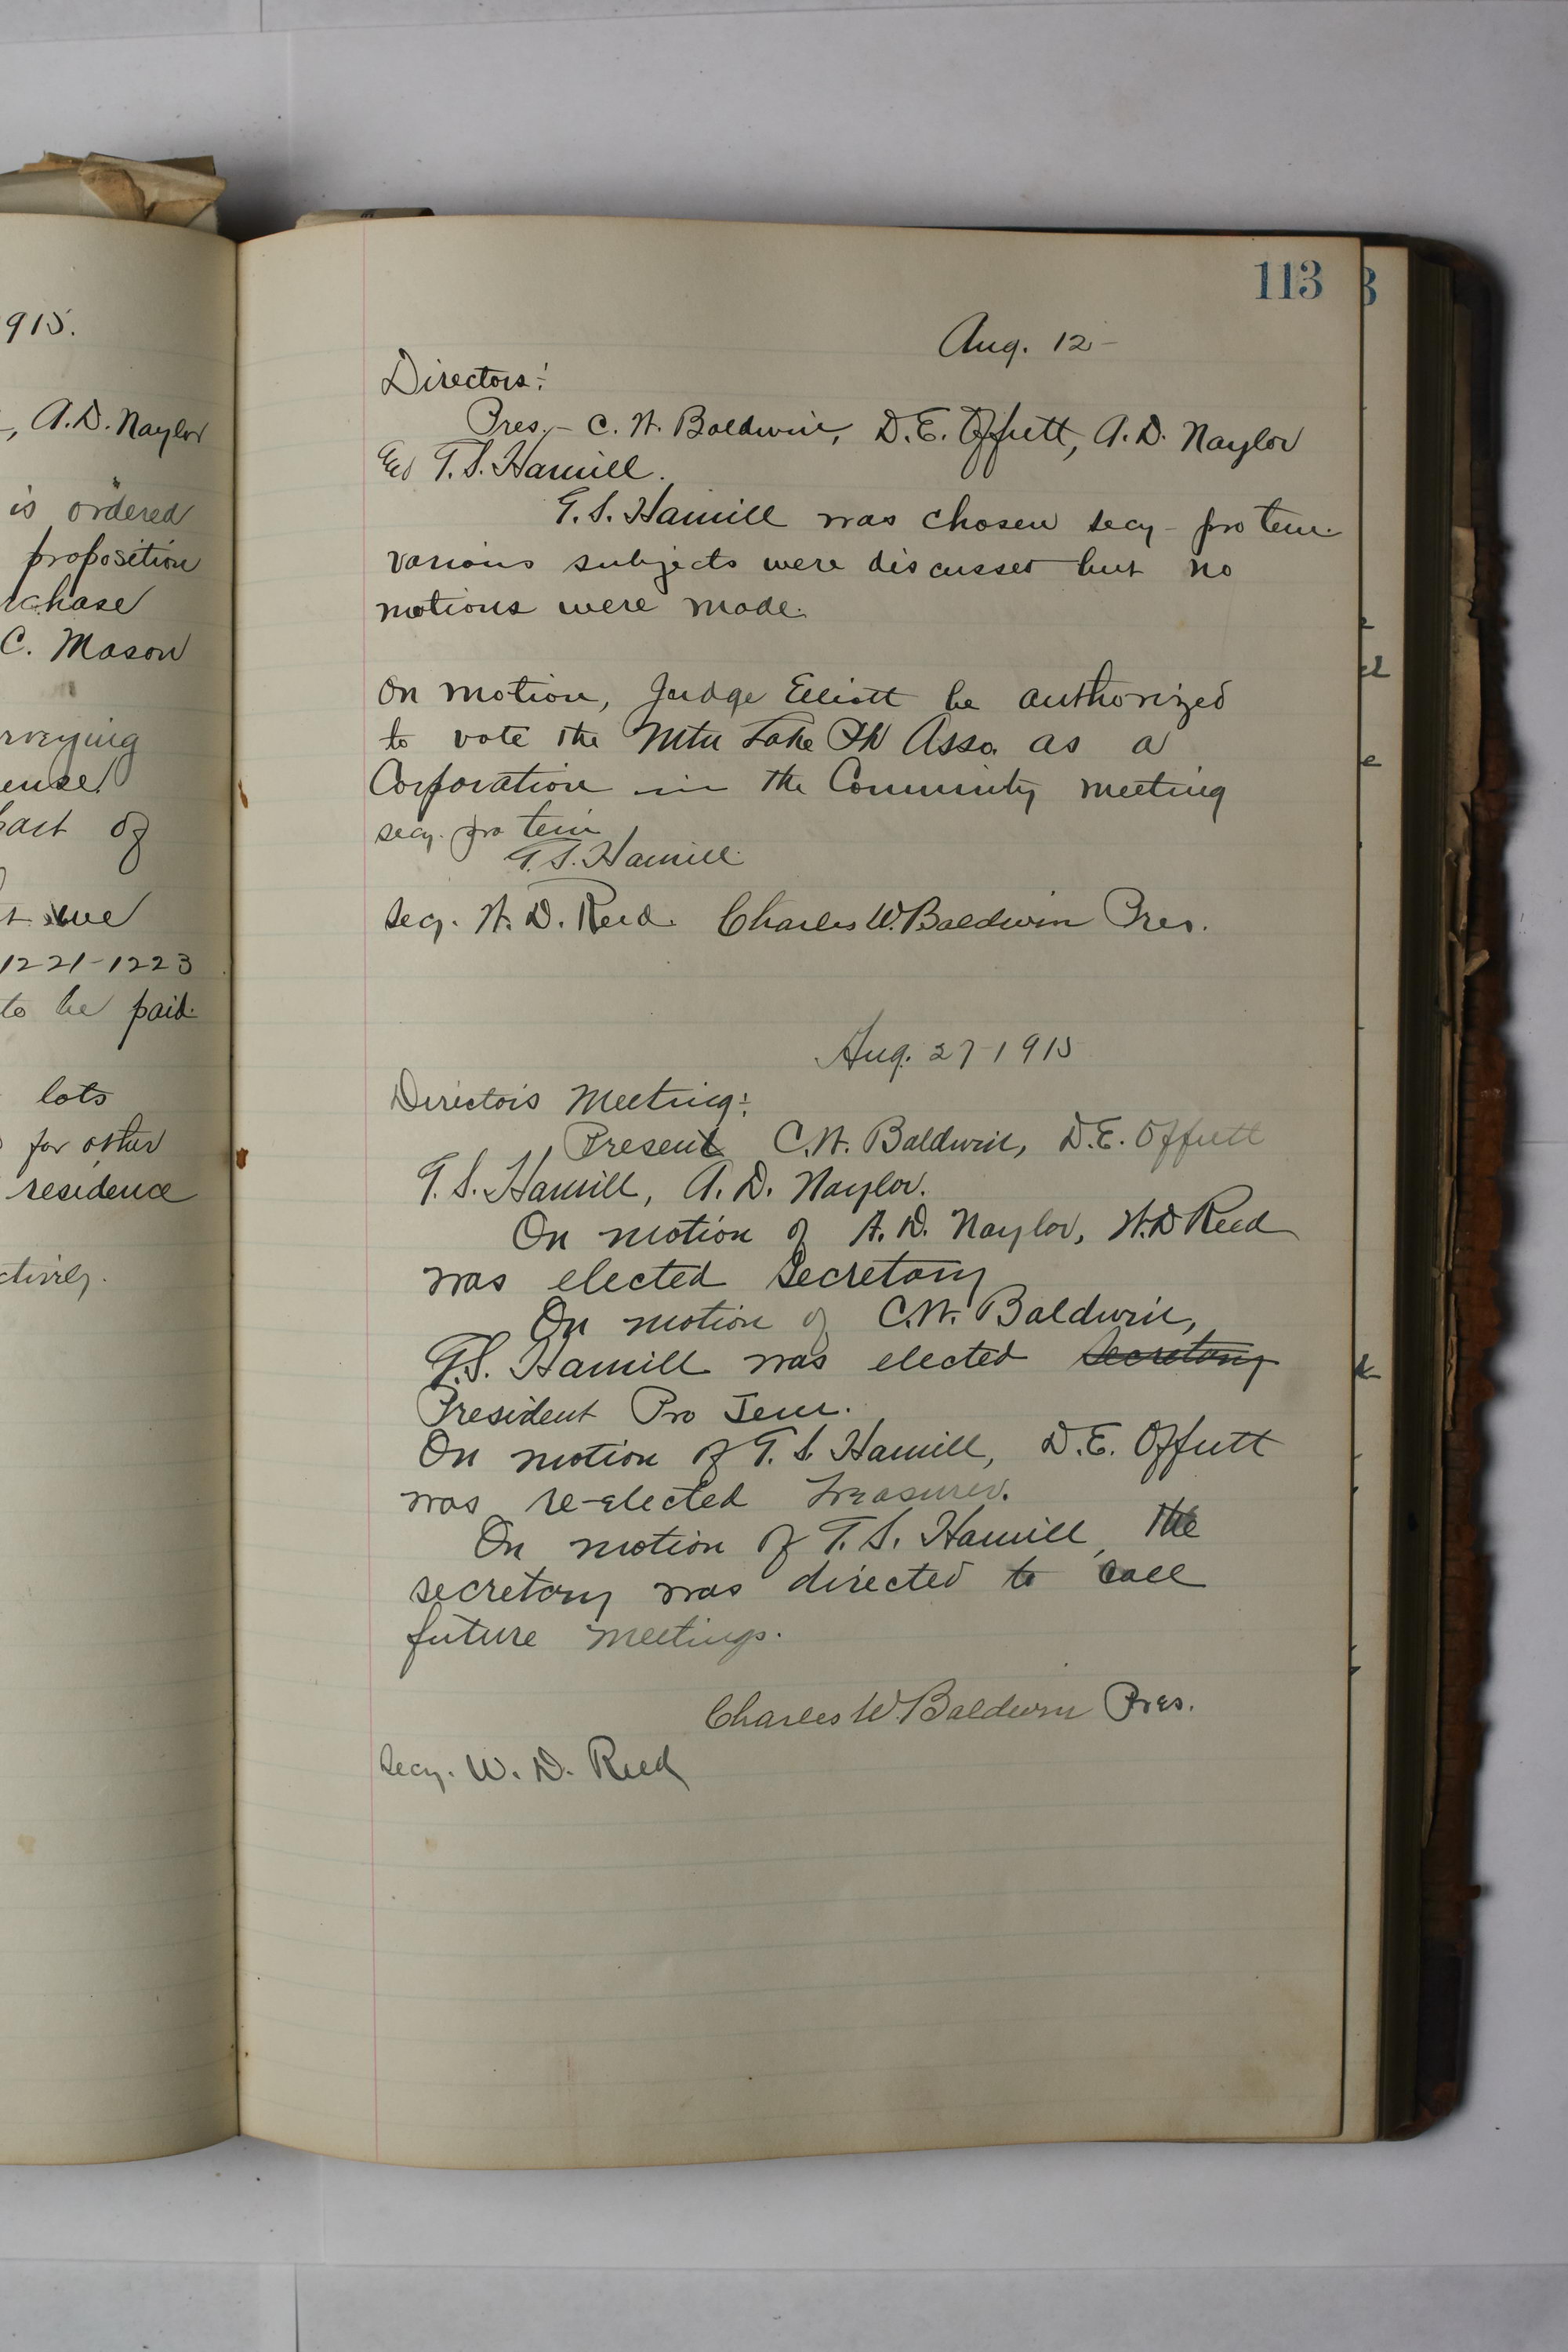 915.
, A.D. Naylor
is ordered
proposition
rchase
C. Mason
rveying
ense
part of
t we
1221-1223
to be paid.
lots
for other
residence
ctively.
113
Aug. 12-
Directors:
Pres.- C. W. Baldwin, D.E. Offutt, A.D. Naylor
T.S. Hamill.
T.S. Hamill was chosen secy- pro tem.
various subjects were discussed but no
motions were made.
On motion, Judge Elliott be authorized
to vote the Mtn Lake Pk Asso. as a
Corporation in the Community meeting
secy. pro tem
T.S. Hamill.
Secy. W. D. Reed. Charles W. Baldwin Pres.
Aug. 27-1915
Directors Meeting:
Present C.W. Baldwin, D.E. Offutt
T.S. Hamill, A.D. Naylor.
On motion of A.D. Naylor, W.D Reed
was elected Secretary
On motion of C.W. Baldwin,
T.S. Hamill was elected Secretary
President Pro Tem.
On motion of T.S. Hamill, D.E. Offutt
was re-elected Treasurer.
On motion of T.S. Hamill, the
secretary was directed to call
future meetings.
Charles W. Baldwin Pres.
Secy. W. D. Reed